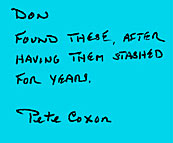 DON
FOUND THESE, AFTER
HAVING THEM STASHED
FOR YEARS.
Pete Coxon